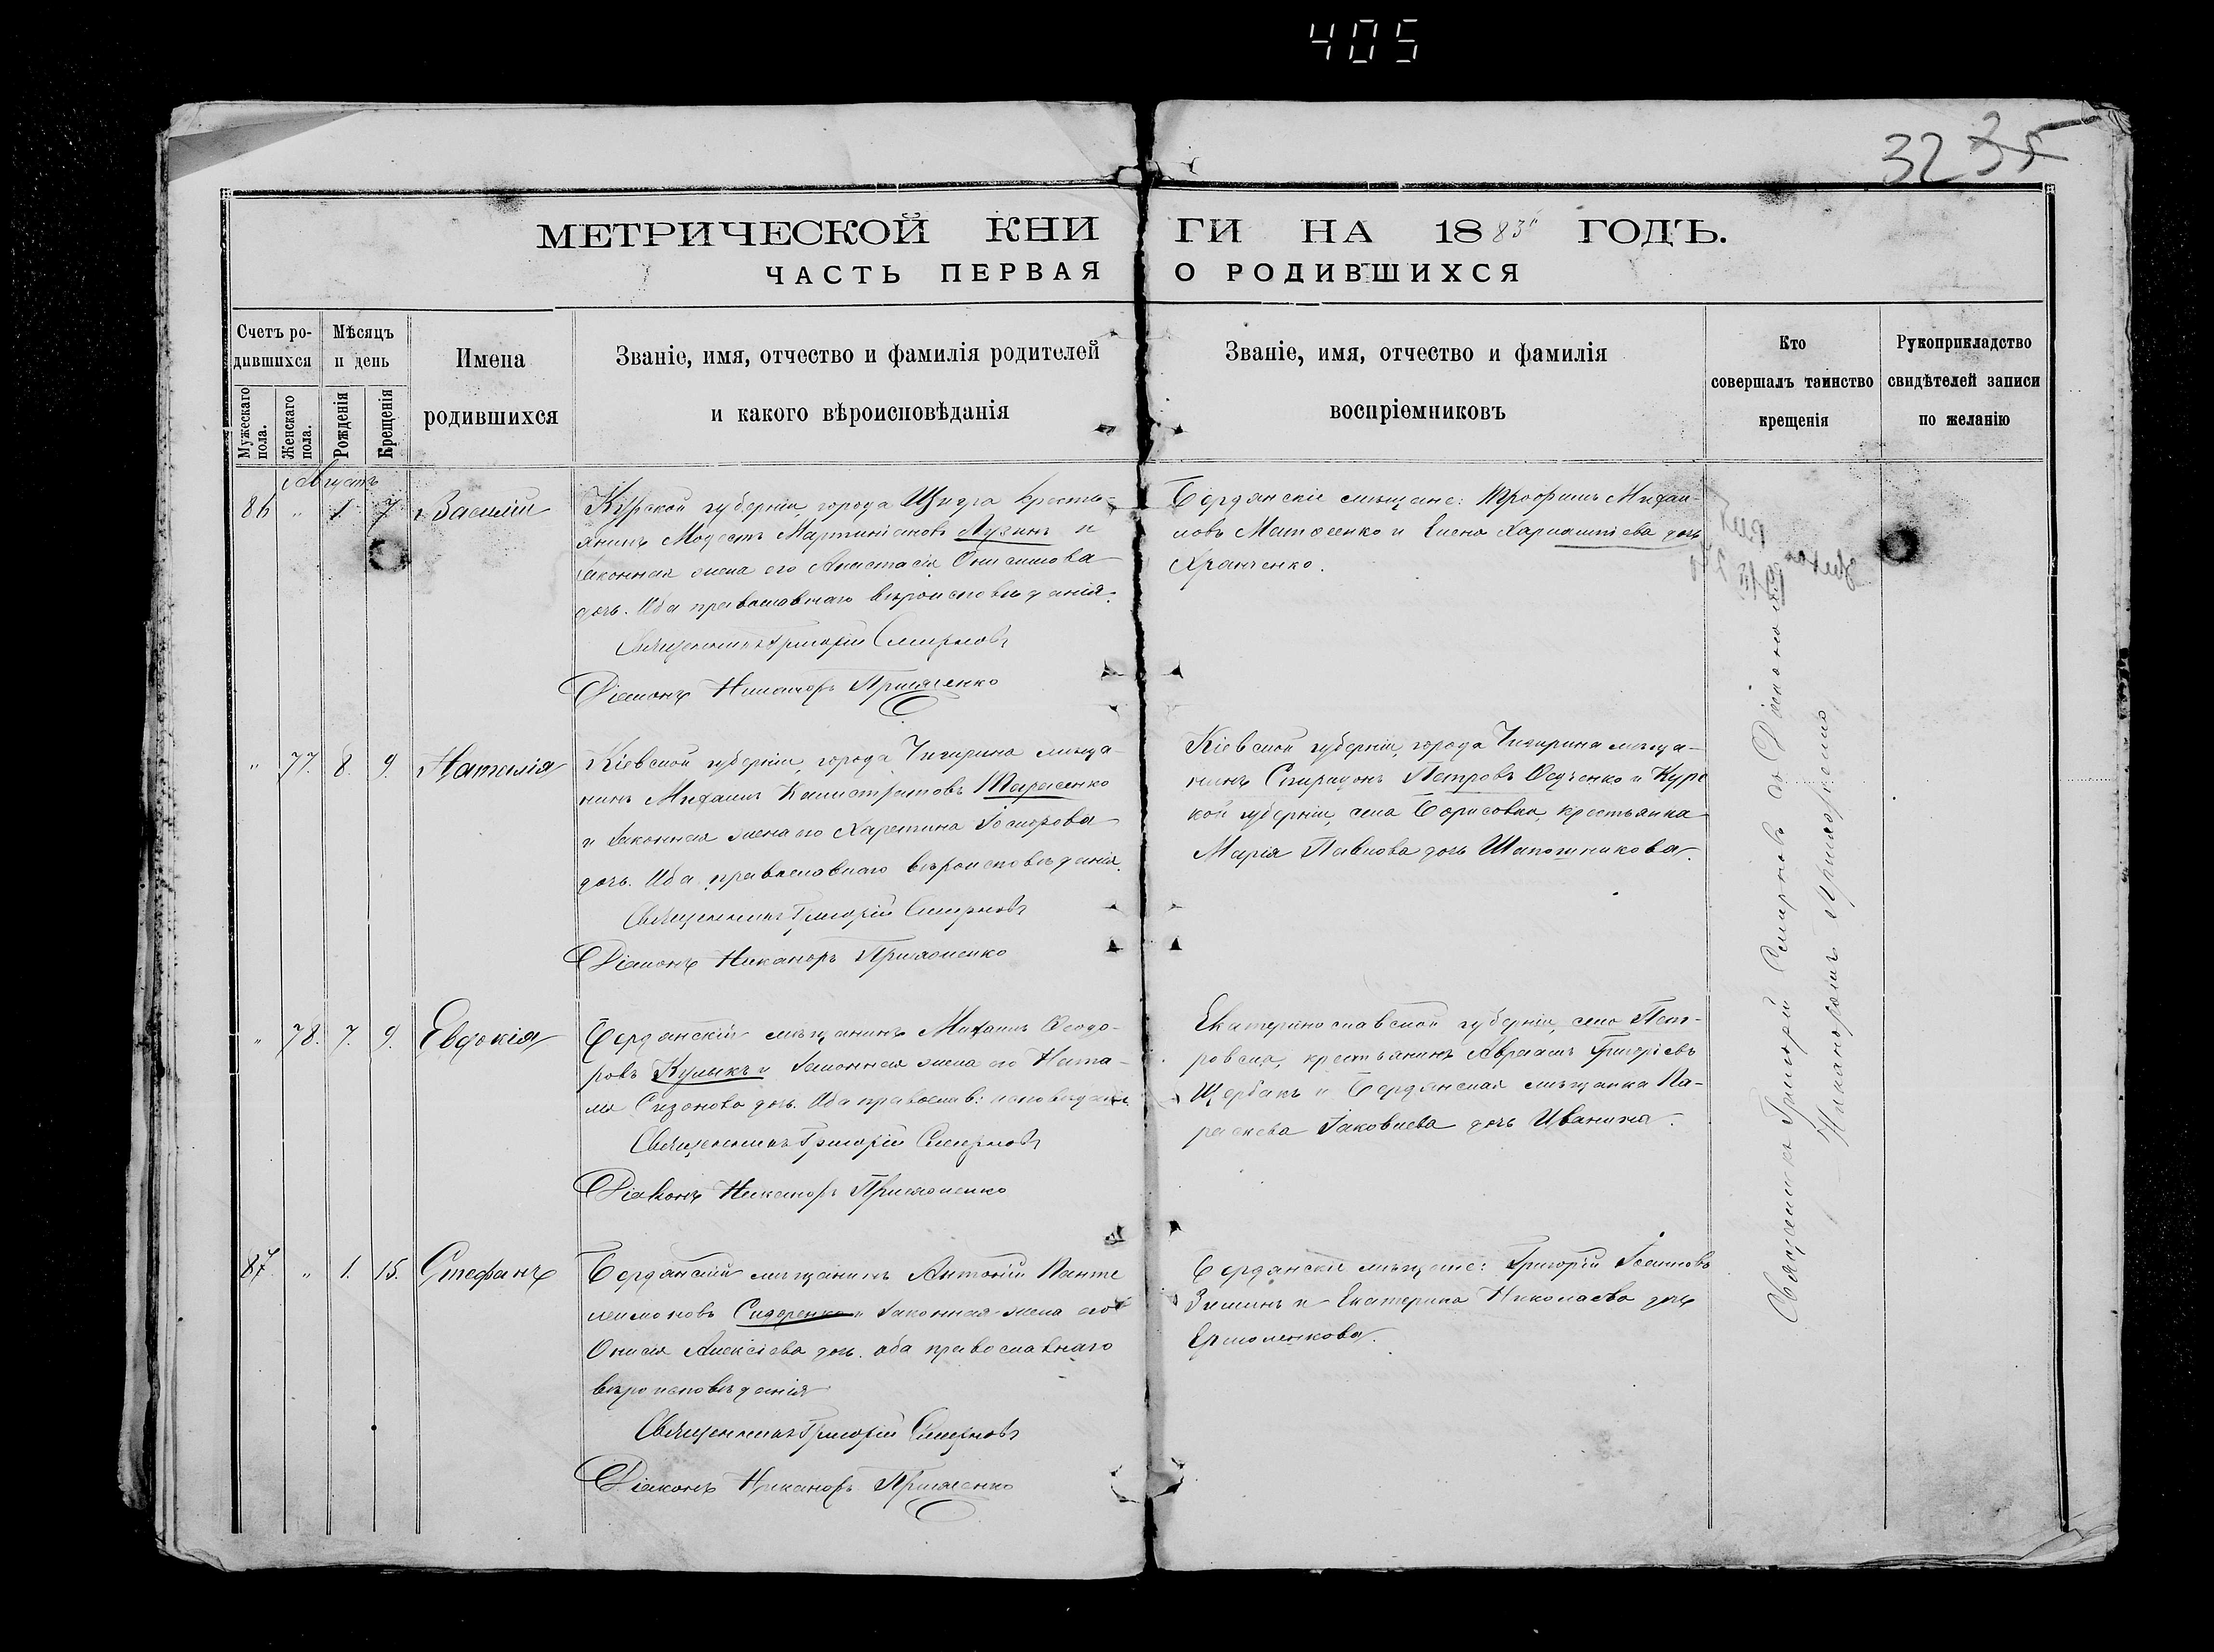 405
32 35
МЕТРИЧЕСКОЙ КНИ ГИ НА 1883й ГОДЪ.
ЧАСТЬ ПЕРВАЯ О РОДИВШИХСЯ
Счетъ родившихся
Мѣсяцъ и день
Имена
родившихся
Званіе, имя, отчество и фамилія родителей
и какого вѣроисповѣданія
Званіе, имя, отчество и фамилія
воспріемниковъ
Кто
совершалъ таинство
крещенія
Рукоприкладство
свидѣтелей записи
по желанію
Мужескаго пола.
Женскаго пола.
Рожденія
Крещенія
Августъ
86 " 1. 7 Василій
Курской губерніи, города Щигра кресть-
янинъ Модестъ Мартиніановъ Лузинъ и
законная жена его Анастасія Онисимова
дочь. Оба православнаго вѣроисповѣданія.
Священникъ Григорій Смирновъ
Діаконъ Никаноръ Прилоченко
Бердянскіе мѣщане: Трофимъ Михаи-
ловъ Матвеенко и Елена Харлампіева дочь
Храпченко.
" 77. 8. 9. Наталія
Кіевской губерніи, города Чигирина мѣща-
нинъ Михаилъ Калистратовъ Тарасенко
и законная жена его Харитина Іосифова
дочь. Оба православнаго вѣроисповѣданія.
Священникъ Григорій Смирновъ
Діаконъ Никаноръ
Кіевской губерніи, города Чигирина мѣща-
нинъ Спиридонъ Петровъ и Курс
кой губерніи, села Борисовки, крестьянка
Марія Павлова дочь Шапошникова.
" 78. 7. 9. Евдокія
Бердянскій мѣщанинъ Михаилъ Ѳеодо-
ровъ Кулыкъ и законная жена его Ната-
лія Сизонова дочь. Оба православ: исповѣданія.
Священникъ Григорій Смирновъ
Діаконъ Никаноръ
Екатеринославской губерніи, села Пет-
ровска, крестьянинъ Авраамъ Григорьевъ
Щербакъ и Бердянская мѣщанка Па-
раскева Іаковлева дочь Иванина.
87. " 1. 15. Стефанъ
Бердянскій мѣщанинъ Антоній Панте
леимоновъ Сидоренко и законная жена его
Онисія Алексіева дочь. оба православнаго
вѣроисповѣданія
Священникъ Григорій Смирновъ
Діаконъ Никаноръ
Бердянскіе мѣщане: Григорій Іоанновъ
Зиминъ и Екатерина Николаева дочь
Ермоленкова.
Священникъ Григорій Смирновъ съ Діакономъ
Никаноромъ